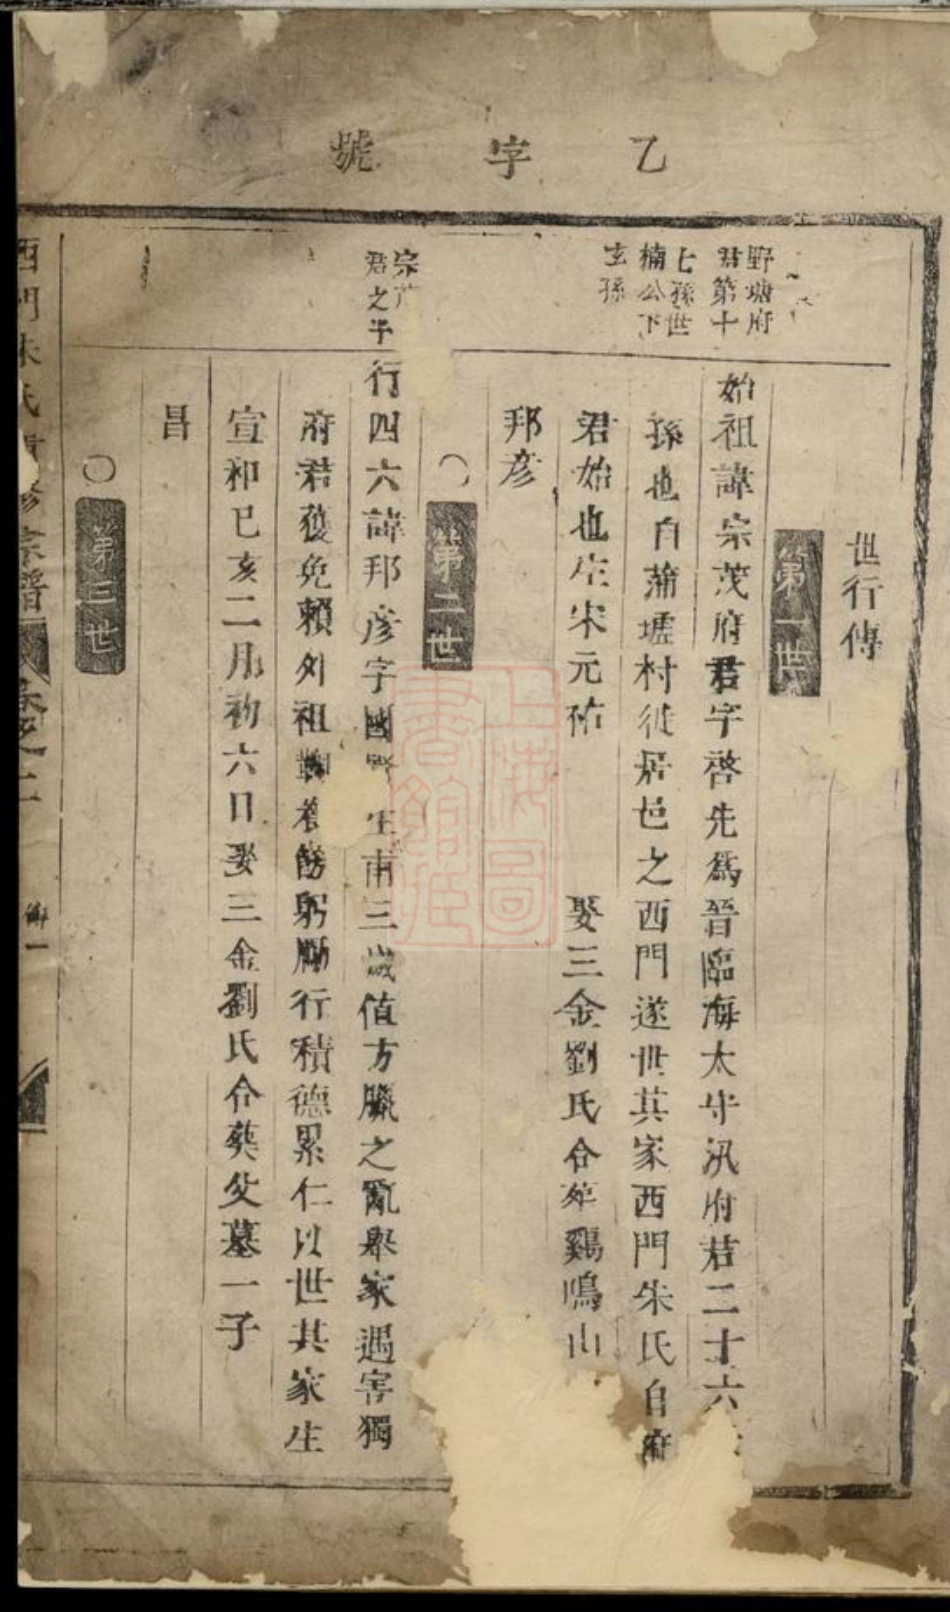 乙字號
世行傳
第一世
野塘府
君第十
七孫世
楠公下
玄孫
始祖諱宗茂府君字啓先爲晉臨海太守汎府君二十六
孫也自蒲墟村徙居邑之西門遂世其家西門朱氏自府
君始也生宋元祐 娶三金劉氏合葬鷄鳴山
邦彦
第二世
宗
君之子
行四六諱邦彦字國 生甫三歲值方臘之亂舉家遇害獨
府君獲免賴外祖 養 躬勵行積德累仁以世其家生
宣和己亥二月初六日娶三金劉氏合葬父墓一子
昌
第三世
西門朱氏 修宗譜 卷之一 傳一
上海圖書館藏